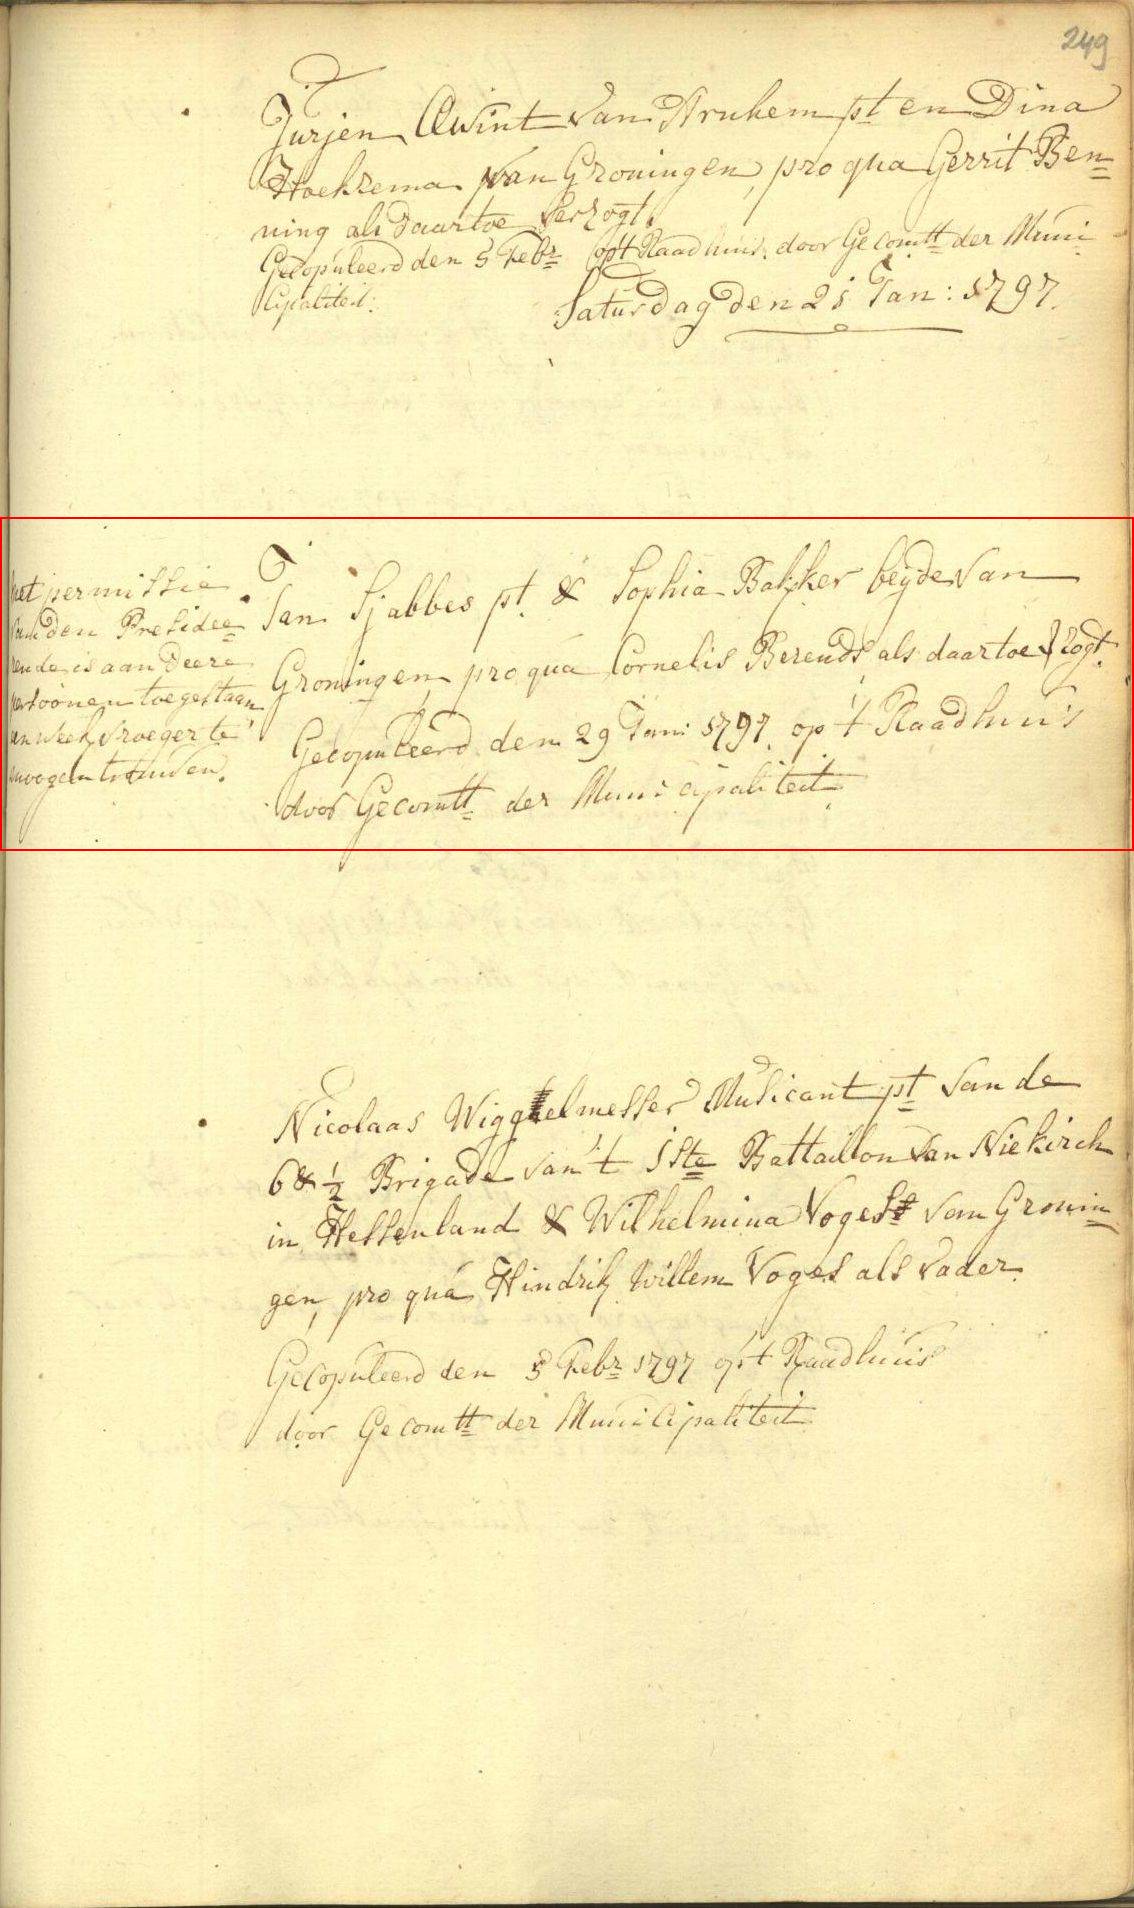 249
Jurjen Qwint van Arnhem pt en Dina
Hoekzema van Groningen, pro qua Gerrit Ben=
ning als daartoe verzogt.
Gecopuleerd den 5 Febr op't Raadhuis door Gecomtt der Muni
cipaliteit:
Saturdag den 21 Jan: 1797.
met permissie
van den Presidee=
rende is aan deese
persoonen toegestaan
een week vroeger te
moogen trouwen.
Jan Sjabbes pt. & Sophia Bakker beyde van
Groningen, pro qua Cornelis Berends als daartoe verzogt.
Gecopuleerd den 29 Jan: 1797 op 't Raadhuis
door Gecomtt der Municipaliteit
Nicolaas Wiggelmesser Musicant pt van de
6de ½ Brigade van 't 1ste Battaillon van Niekirch
in Hessenland & Wilhelmina Voges van Gronin=
gen, pro qua Hindrik Willem Voges als vader.
Gecopuleerd den 5 Febr 1797 op 't Raadhuis
door Gecomtt der Municipaliteit